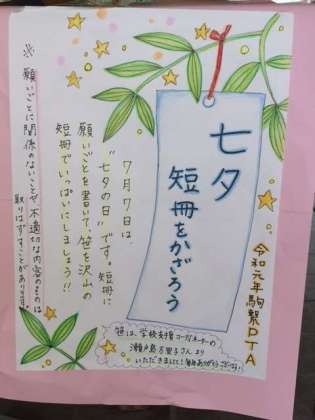 七夕
短冊をかざろう
令和元年駒繋PTA
7月7日は、
"七夕の日"です。短冊に
願いごとを書いて、笹を沢山の
短冊でいっぱいにしましょう!!
※願いごとに関係のないことや、不適切な内容のものは
取りはずすことがあります。
笹は、学校支援コーディネーターの
瀬戸島万里子さんより
いただきました!毎年ありがとうございます!